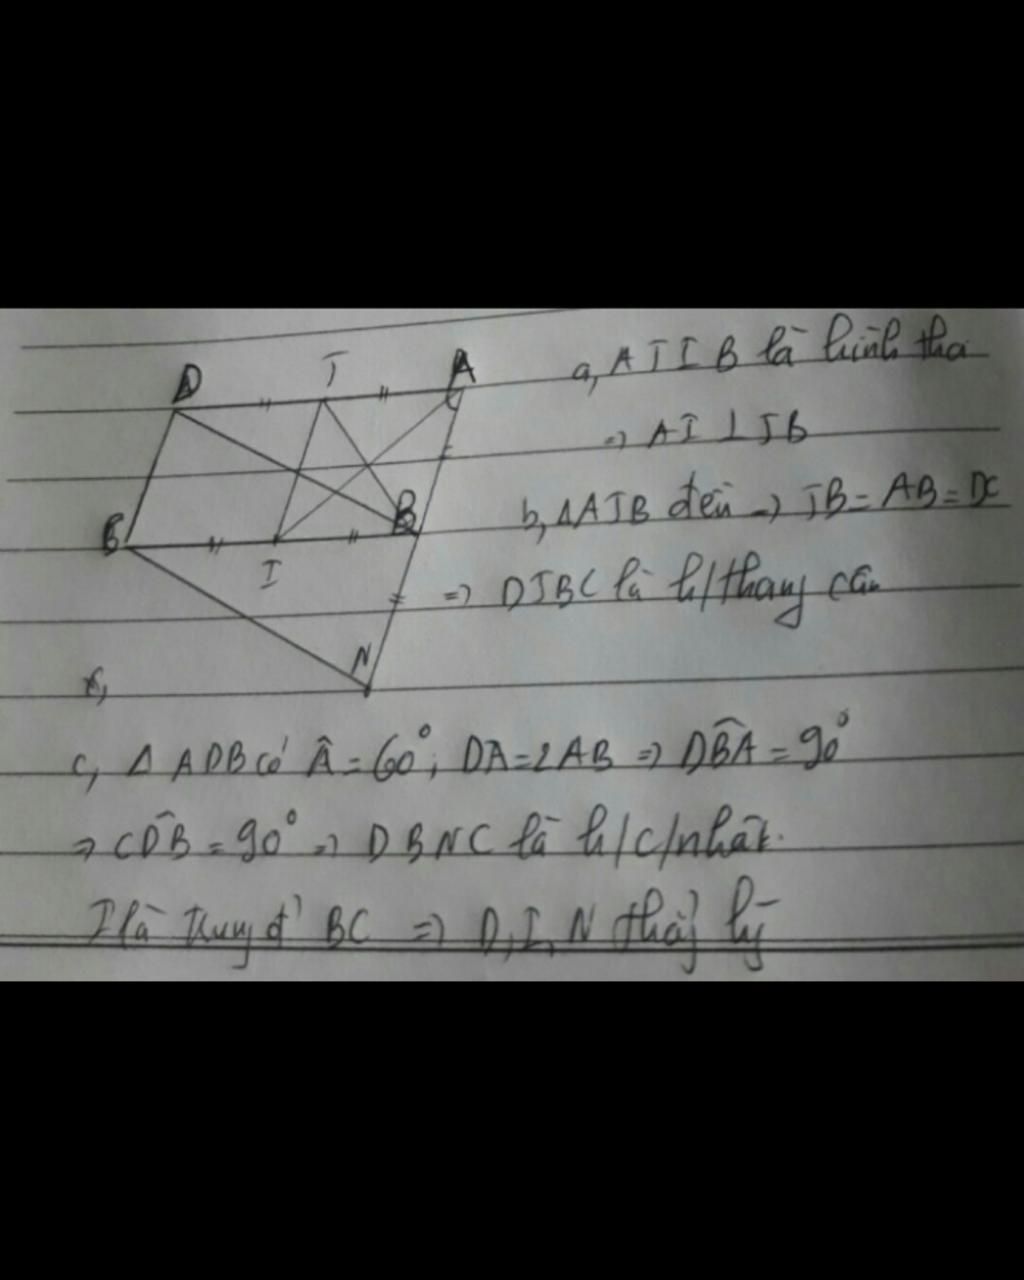 D J A
B
C
I
N
a, AJIB là hình tho
=> AI ⊥ JB
b, ΔAJB đều => JB = AB = DC
=> DJBC là h/thang cân
c,
c, Δ ADB có Â = 60°; DA = 2AB => DBA = 90°
=> CDB = 90° => DBNC là h/c/nhật.
I là trung đ' BC => D, I, N thẳg